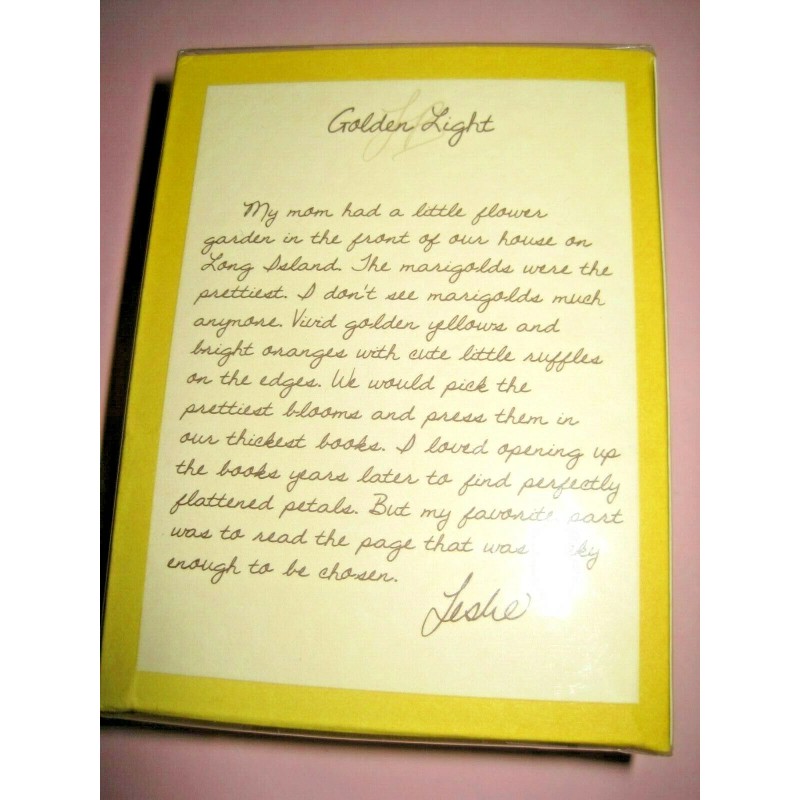 Golden Light
My mom had a little flower
garden in the front of our house on
Long Island. The marigolds were the
prettiest. I don't see marigolds much
anymore. Vivid golden yellows and
bright oranges with cute little ruffles
on the edges. We would pick the
prettiest blooms and press them in
our thickest books. I loved opening up
the books years later to find perfectly
flattened petals. But my favorite part
was to read the page that was
enough to be chosen.
Leslie